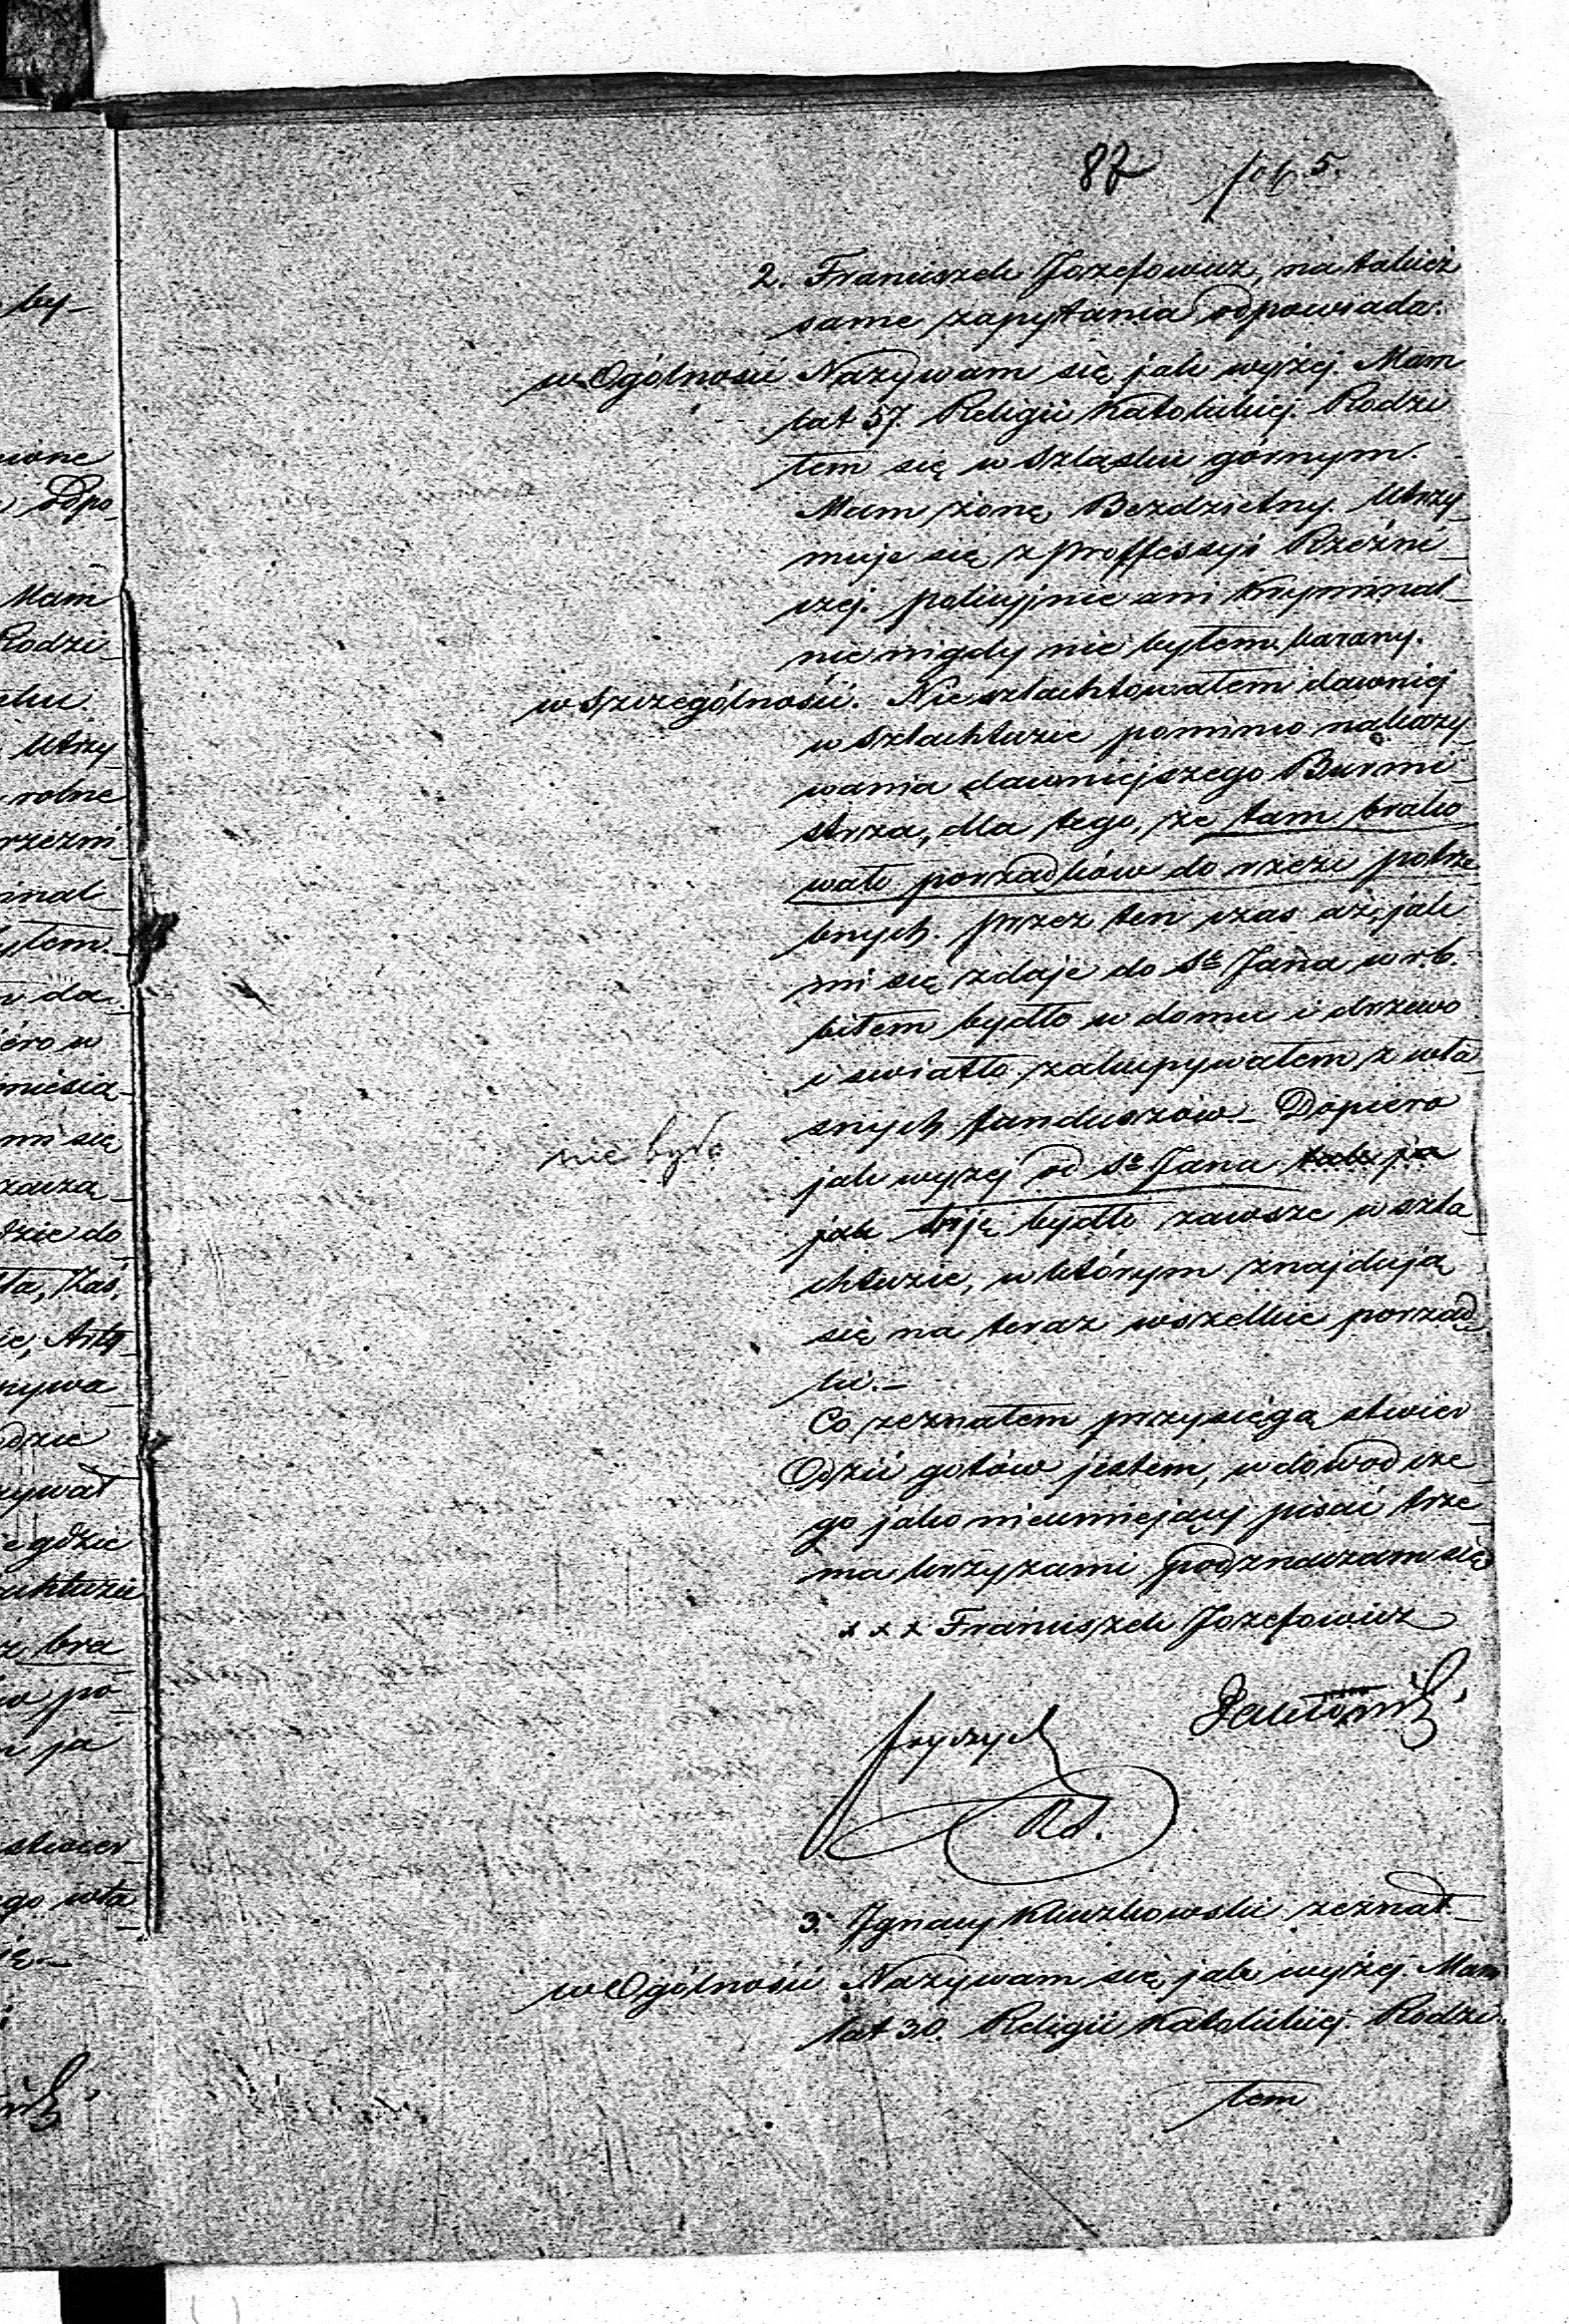 by_
87 fol. 5.
2. Franciszek Jozefowicz, na takież
same zapytania odpowiada.
w Ogólności Nazywam się jak wyżej. Mam
lat 57. Religii Katolickiej. Rodzi
łem się w Szląsku górnym.
Mam żonę, Bezdzietny. Utrzy_
muje się z proffessyi Rzeźni_
czej. policyjnie ani kryminal_
nie nigdy nie byłem karany.
w Szczególności. Nie szlachtowałem dawniej
w szlachtuzie pomimo nakazy_
wania dawniejszego Burmi_
strza, dla tego, że tam brako
wało porządków do rzezi potrze_
bnych. przez ten czas aż, jak
mi się zdaje do Sgo Jana w r.b.
biłem bydło w domu i drzewo
i swiatło zakupywałem z wła_
snych funduszów._ Dopiero
nie była
jak wyżej od Sgo Jana ja
jak biję bydło zawsze w szla_
chtuzie, w którym znajdują
się na teraz wszelkie porząd_
ki._
Co zeznałem przysięgą stwier
dzić gotów jestem, w dowód cze_
go jako nieumiejący pisać trze_
ma krzyżami podznaczam się
x x x Franciszek Jozefowicz
3. Ignacy Kluczkowski zeznał_
w Ogólności Nazywam się, jak wyżej. Mam
lat 30. Religii Katolickiej. Rodzi_
łem
wione
Odpo_
Mam
Rodzi_
Utrzy_
rolne
rzezni_
minal_
byłem._
miesią_
mi się
dzie do
gdzie
z bra
po_
ja
stwier_
go wła